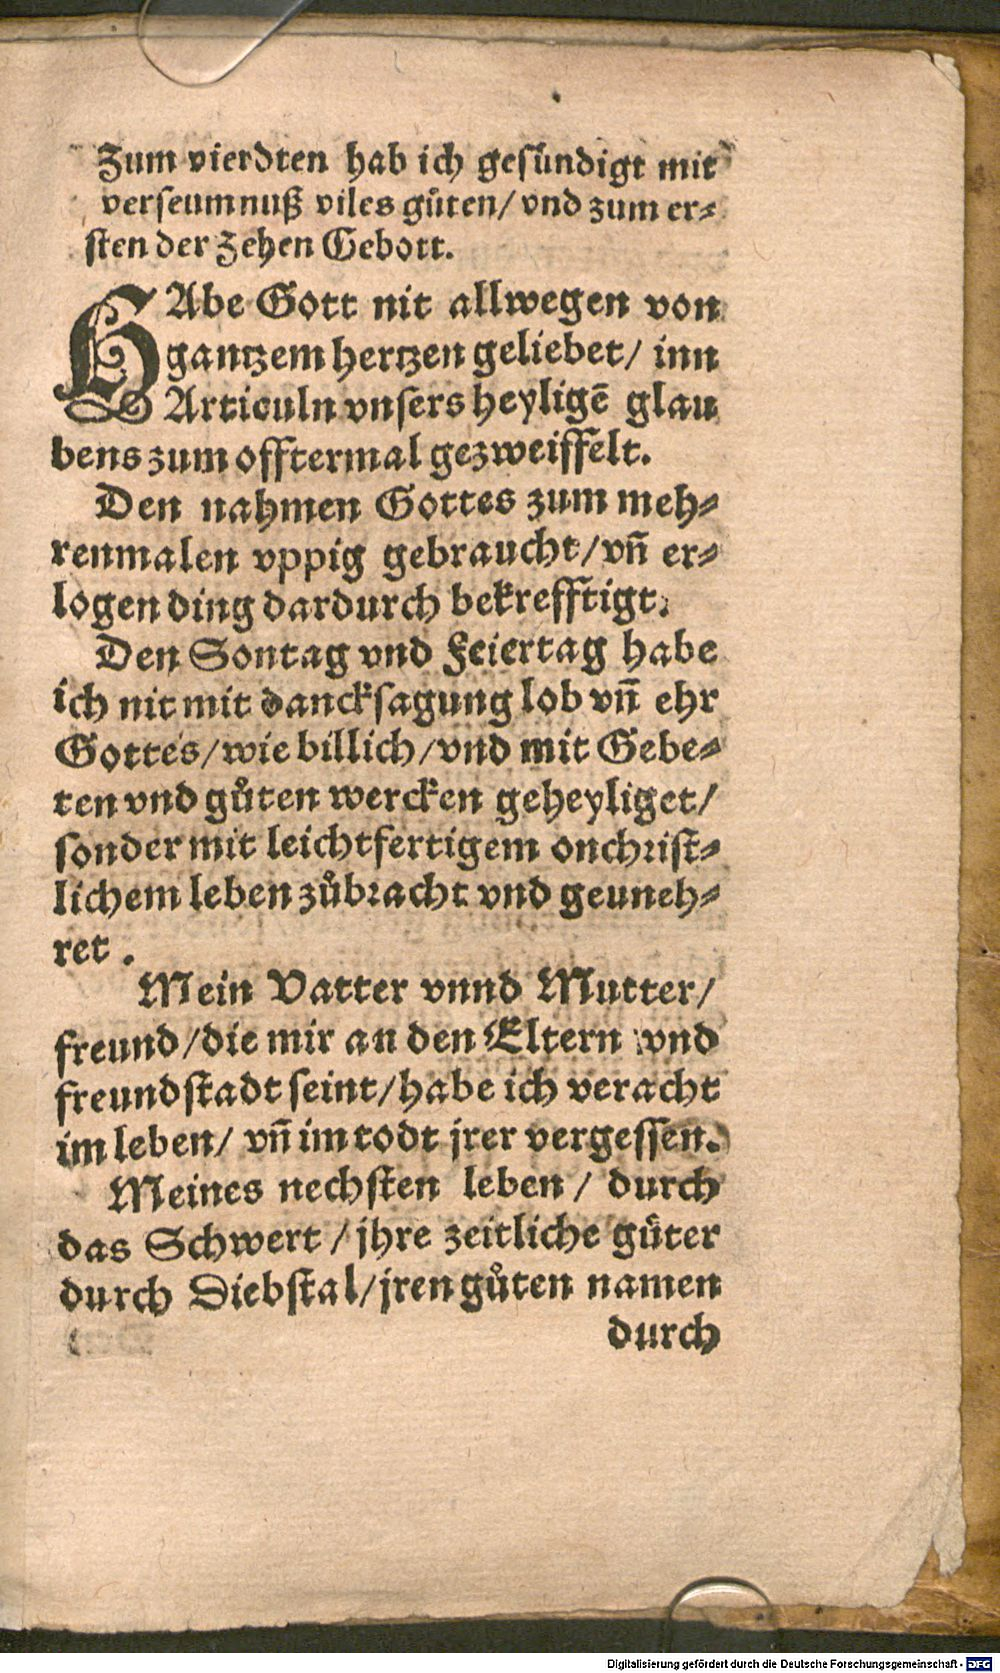 Zum vierdten hab ich gesündigt mit
verseumnuß viles gůten/ vnd zum er⸗
sten der Zehen Gebott.
HAbe Gott nit allwegen von
gantzem hertzen geliebet/ inn
Articuln vnsers heyligē glau
bens zum offtermal gezweiffelt.
Den nahmen Gottes zum meh⸗
renmalen vppig gebraucht/vn̄ er⸗
logen ding dardurch bekrefftigt.
Den Sontag vnd Feiertag habe
ich nit mit dancksagung lob vn̄ ehr
Gottes/wie billich/vnd mit Gebe⸗
ten vnd gůten wercken geheyliget/
sonder mit leichtfertigem onchrist⸗
lichem leben zůbracht vnd geuneh⸗
ret.
Mein Vatter vnnd Mutter/
freund/die mir an den Eltern vnd
freundstadt seint/habe ich veracht
im leben/ vn̄ im todt jrer vergessen.
Meines nechsten leben/ durch
das Schwert/jhre zeitliche güter
durch Diebstal/jren gůten namen
durch
Digitalisierung gefördert durch die Deutsche Forschungsgemeinschaft - DFG